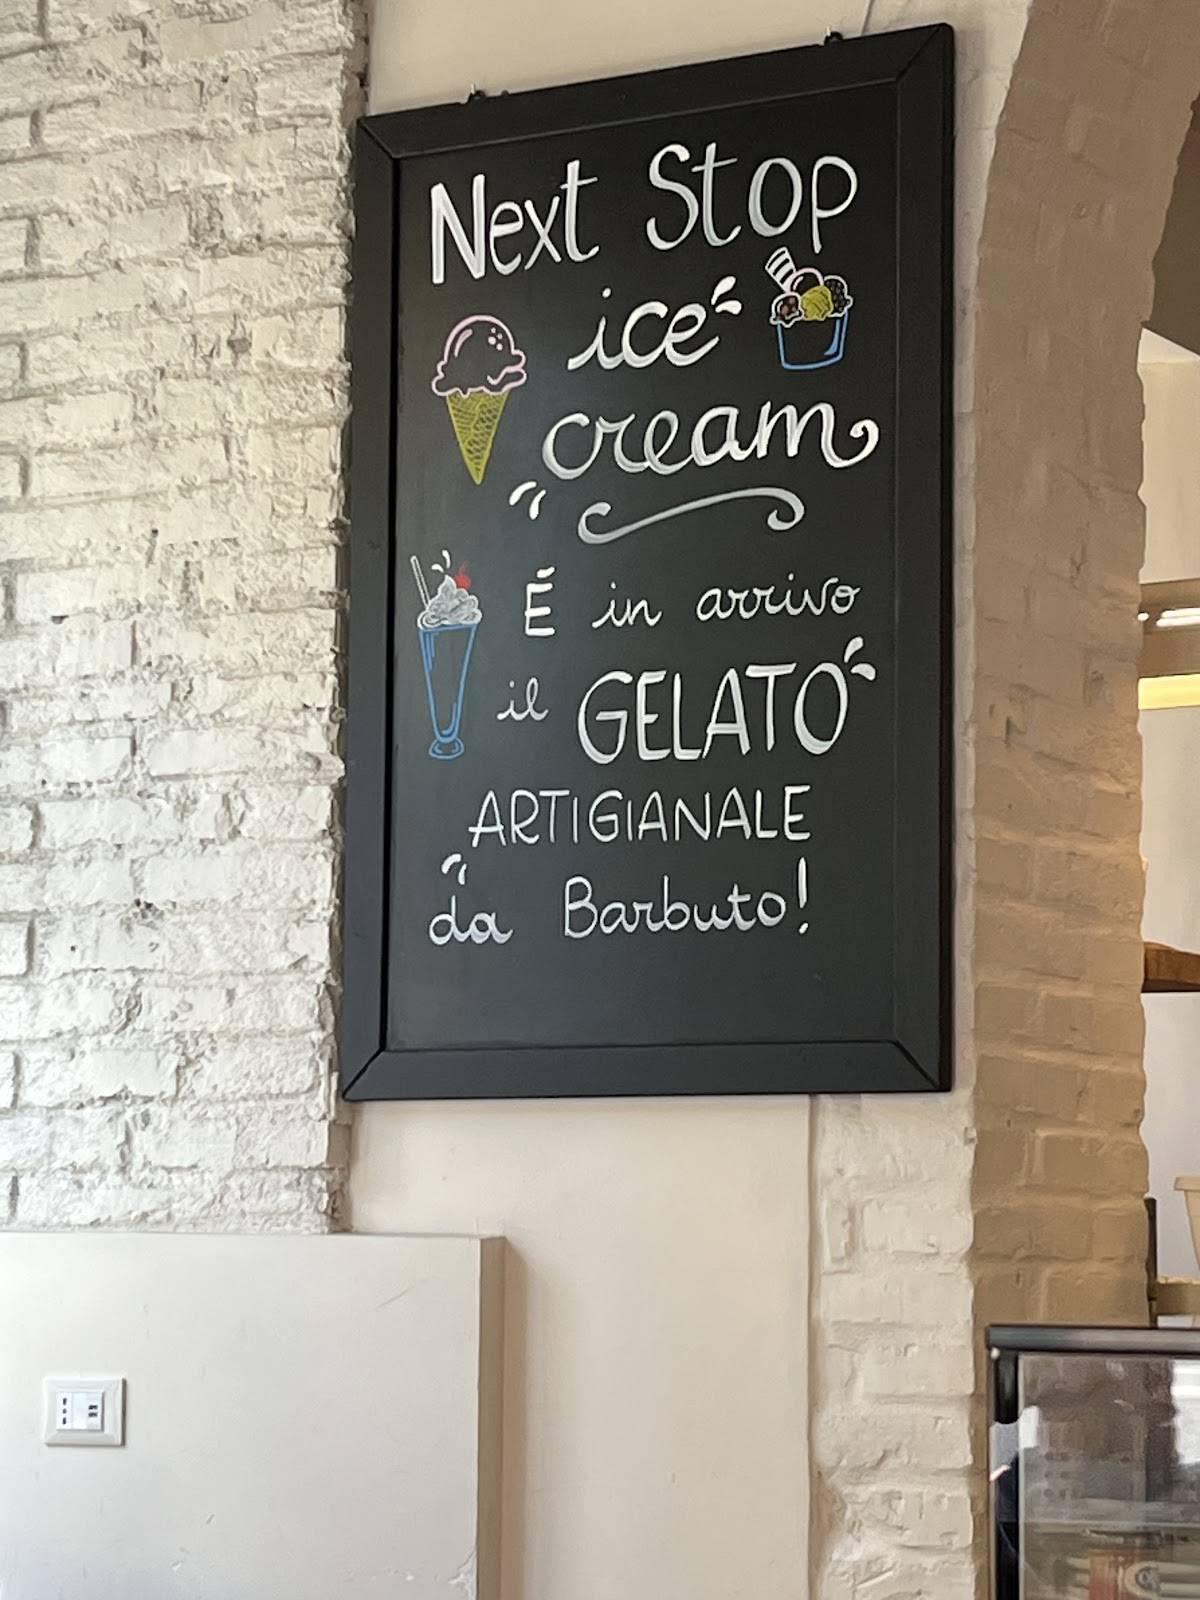 Next Stop
ice
cream
É in arrivo
il GELATO
ARTIGIANALE
da Barbuto!